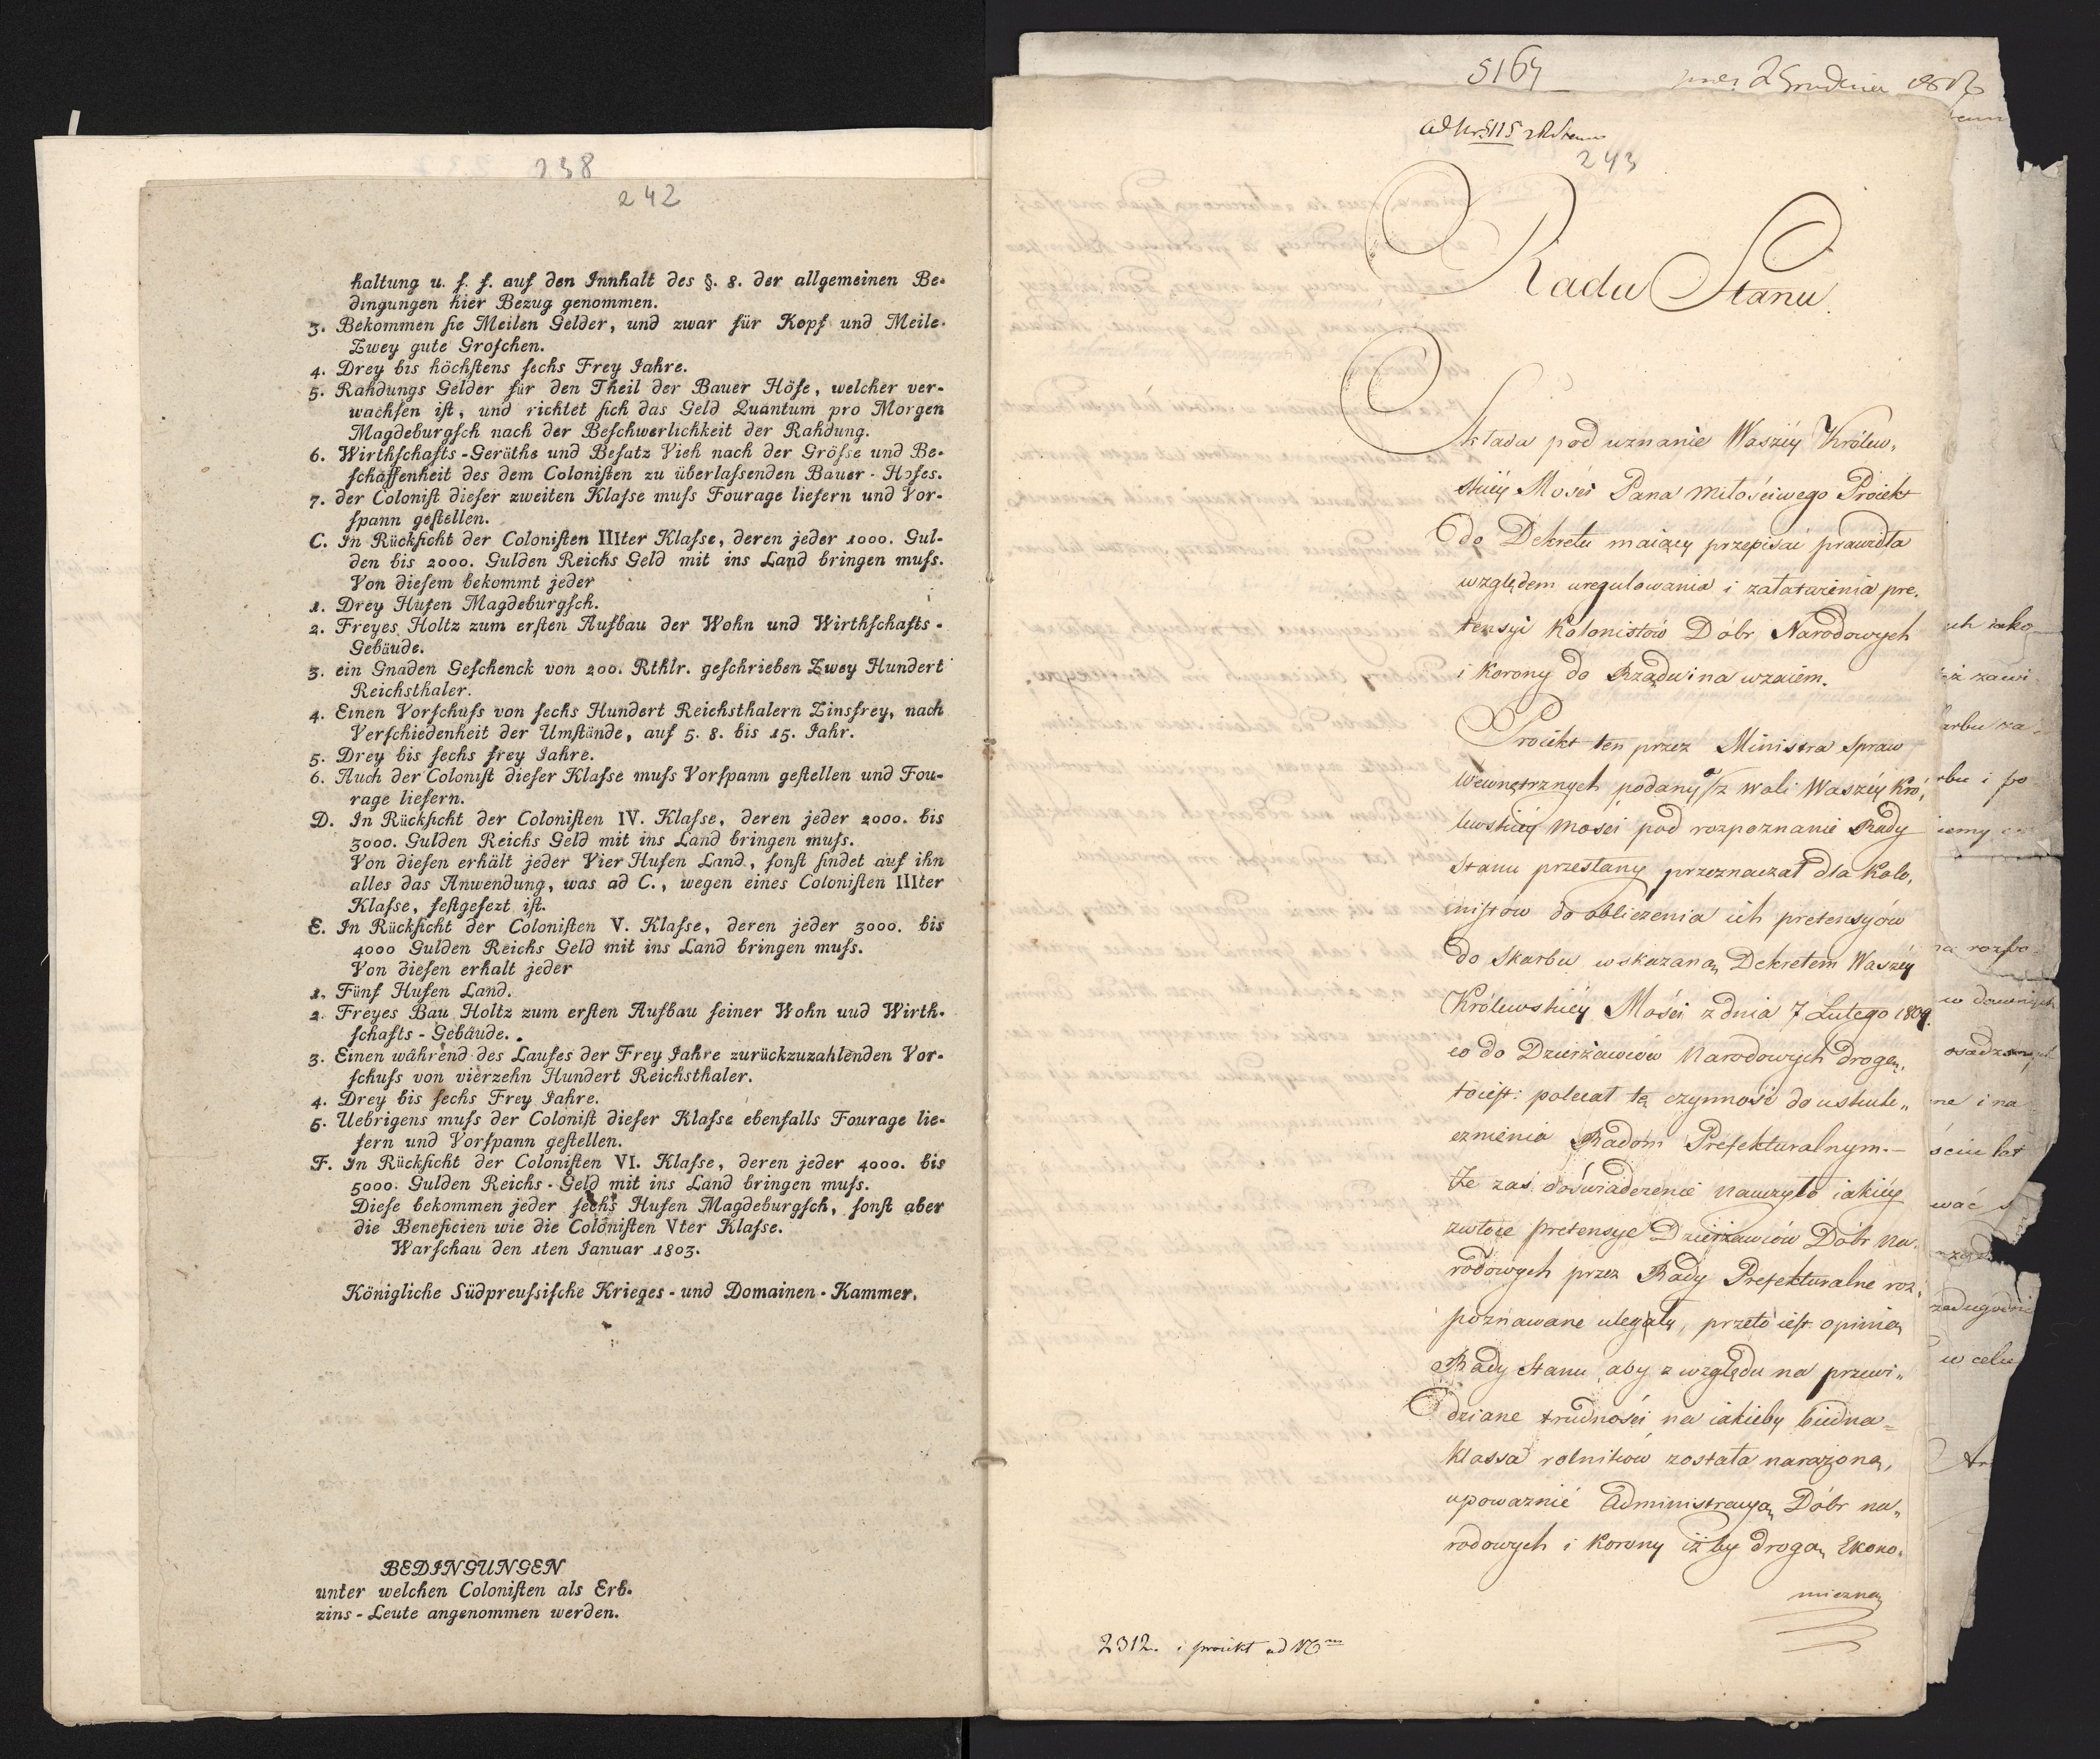 238
242
haltung u. s. f. auf den Innhalt des §. 8. der allgemeinen Be-
dingungen hier Bezug genommen.
3. Bekommen sie Meilen Gelder, und zwar für Kopf und Meile.
Zwey gute Groschen.
4. Drey bis höchstens sechs Frey Jahre.
5. Rahdungs Gelder für den Theil der Bauer Höfe, welcher ver-
wachsen ist, und richtet sich das Geld Quantum pro Morgen
Magdeburgsch nach der Beschwerlichkeit der Rahdung.
6. Wirthschafts-Geräthe und Besatz Vieh nach der Grösse und Be-
schaffenheit des dem Colonisten zu überlassenden Bauer-Hofes.
7. der Colonist dieser zweiten Klasse muss Fourage liefern und Vor-
spann gestellen.
C. In Rücksicht der Colonisten IIIter Klasse, deren jeder 1000. Gul-
den bis 2000. Gulden Reichs Geld mit ins Land bringen muss.
Von diesem bekommt jeder
1. Drey Hufen Magdeburgsch.
2. Freyes Holtz zum ersten Aufbau der Wohn und Wirthschafts-
Gebäude.
3. ein Gnaden Geschenck von 200. Rthlr. geschrieben Zwey Hundert
Reichsthaler.
4. Einen Vorschuss von sechs Hundert Reichsthalern Zinsfrey, nach
Verschiedenheit der Umstände, auf 5. 8. bis 15. Jahr.
5. Drey bis sechs frey Jahre.
6. Auch der Colonist dieser Klasse muss Vorspann gestellen und Fou-
rage liefern.
D. In Rücksicht der Colonisten IV. Klasse, deren jeder 2000. bis
3000. Gulden Reichs Geld mit ins Land bringen muss.
Von diesen erhält jeder Vier Hufen Land, sonst findet auf ihn
alles das Anwendung, was ad C., wegen eines Colonisten IIIter
Klasse, festgesezt ist.
E. In Rücksicht der Colonisten V. Klasse, deren jeder 3000. bis
4000 Gulden Reichs Geld mit ins Land bringen muss.
Von diesen erhalt jeder
1. Fünf Hufen Land.
2. Freyes Bau Holtz zum ersten Aufbau seiner Wohn uud Wirth-
schafts-Gebäude.
3. Einen während des Laufes der Frey Jahre zurückzuzahlenden Vor-
schuss von vierzehn Hundert Reichsthaler.
4. Drey bis sechs Frey Jahre.
5. Uebrigens muss der Colonist dieser Klasse ebenfalls Fourage lie-
fern und Vorspann gestellen.
F. In Rücksicht der Colonisten VI. Klasse, deren jeder 4000. bis
5000. Gulden Reichs-Geld mit ins Land bringen muss.
Diese bekommen jeder sechs Hufen Magdeburgsch, sonst aber
die Beneficien wie die Colonisten Vter Klasse.
Warschau den 1ten Januar 1803.
Königliche Südpreussische Krieges- und Domainen-Kammer.
BEDINGUNGEN
unter welchen Colonisten als Erb-
zins-Leute angenommen werden.
5164
2 Grudnia
ad Nr. 5115
243
Rada Stanu.
Składa pod uznanie Waszéy Królew,
skiéy Mości Pana Miłościwego Proiekt
do Dekretu maiący przepisać prawidła
względem uregulowania i załatwienia pre,
tensyi Kolonistów Dóbr Narodowych
i Korony do Rządu i na wzaiem.
Proiekt ten przez Ministra Spraw
Wewnętrznych podany z woli Waszéy Kró,
lewskiéy Mości pod rozpoznanie Rady
Stanu przesłany przeznaczał dla Kolo,
nistów do obliczenia ich pretensyów
do Skarbu wskazaną Dekretem Waszéy
Królewskiéy Mości z dnia 7 Lutego 1809.
co do Dzierżawców Narodowych drogę,
toiest: polecał tę czynność do uskute,,
cznienia Radom Prefekturalnym.—
Że zaś doświadczenie nauczyło iakiéy
zwłoce pretensye Dzierżawców Dóbr Na,
rodowych przez Rady Prefekturalne roz,
poznawane ulegały, przeto iest opinią
Rady Stanu aby z względu na przewi,,
dziane trudności na iakieby biedna=
klassa rolników została narażoną,
upoważnić Administracyą Dóbr na,,
rodowych i Korony iżby drogą Ekono,
miczną
2312. i proiekt ad
ich iako
iż zawi
arbu za
rbu i po
iemy
na rozpo
w dawnych
osadzonych
ne i na
ściu lat
wać
w celu